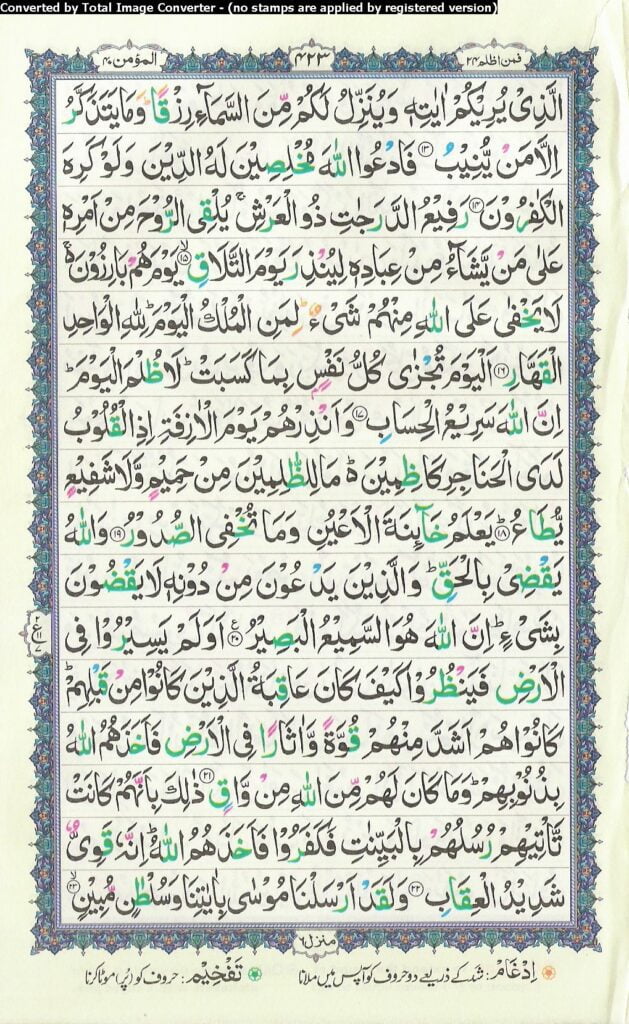 Converted by Total Image Converter - (no stamps are applied by registered version)
فمن اظلم ۲۴
۴۲۳
المؤمن ۴۰
الَّذِىْ يُرِيْكُمْ اٰيٰتِهٖ وَيُنَزِّلُ لَكُمْ مِّنَ السَّمَآءِ رِزْقًا ؕ وَمَا يَتَذَكَّرُ
اِلَّا مَنْ يُّنِيْبُ ﴿۱۳﴾ فَادْعُوا اللّٰهَ مُخْلِصِيْنَ لَهُ الدِّيْنَ وَلَوْ كَرِهَ
الْكٰفِرُوْنَ ﴿۱۴﴾ رَفِيْعُ الدَّرَجٰتِ ذُو الْعَرْشِ ۚ يُلْقِى الرُّوْحَ مِنْ اَمْرِهٖ
عَلٰى مَنْ يَّشَآءُ مِنْ عِبَادِهٖ لِيُنْذِرَ يَوْمَ التَّلَاقِ ۙ﴿۱۵﴾ يَوْمَ هُمْ بَارِزُوْنَ ۚ
لَا يَخْفٰى عَلَى اللّٰهِ مِنْهُمْ شَىْءٌ ؕ لِمَنِ الْمُلْكُ الْيَوْمَ ؕ لِلّٰهِ الْوَاحِدِ
الْقَهَّارِ ﴿۱۶﴾ اَلْيَوْمَ تُجْزٰى كُلُّ نَفْسٍ بِمَا كَسَبَتْ ؕ لَا ظُلْمَ الْيَوْمَ ؕ
اِنَّ اللّٰهَ سَرِيْعُ الْحِسَابِ ﴿۱۷﴾ وَاَنْذِرْهُمْ يَوْمَ الْاٰزِفَةِ اِذِ الْقُلُوْبُ
لَدَى الْحَنَاجِرِ كَاظِمِيْنَ ۬ؕ مَا لِلظّٰلِمِيْنَ مِنْ حَمِيْمٍ وَّلَا شَفِيْعٍ
يُّطَاعُ ؕ﴿۱۸﴾ يَعْلَمُ خَآئِنَةَ الْاَعْيُنِ وَمَا تُخْفِى الصُّدُوْرُ ﴿۱۹﴾ وَاللّٰهُ
يَقْضِىْ بِالْحَقِّ ؕ وَالَّذِيْنَ يَدْعُوْنَ مِنْ دُوْنِهٖ لَا يَقْضُوْنَ
بِشَىْءٍ ؕ اِنَّ اللّٰهَ هُوَ السَّمِيْعُ الْبَصِيْرُ ﴿۲۰﴾ اَوَلَمْ يَسِيْرُوْا فِى
الْاَرْضِ فَيَنْظُرُوْا كَيْفَ كَانَ عَاقِبَةُ الَّذِيْنَ كَانُوْا مِنْ قَبْلِهِمْ ؕ
كَانُوْا هُمْ اَشَدَّ مِنْهُمْ قُوَّةً وَّاٰثَارًا فِى الْاَرْضِ فَاَخَذَهُمُ اللّٰهُ
بِذُنُوْبِهِمْ ؕ وَمَا كَانَ لَهُمْ مِّنَ اللّٰهِ مِنْ وَّاقٍ ﴿۲۱﴾ ذٰلِكَ بِاَنَّهُمْ كَانَتْ
تَّاْتِيْهِمْ رُسُلُهُمْ بِالْبَيِّنٰتِ فَكَفَرُوْا فَاَخَذَهُمُ اللّٰهُ ؕ اِنَّهٗ قَوِىٌّ
شَدِيْدُ الْعِقَابِ ﴿۲۲﴾ وَلَقَدْ اَرْسَلْنَا مُوْسٰى بِاٰيٰتِنَا وَسُلْطٰنٍ مُّبِيْنٍ ۙ﴿۲۳﴾
۲
ع
۱۱
۷
منزل ۶
اِدْغَام: شد کے ذریعے دو حروف کو آپس میں ملانا
تَفْخِيْم: حروف کو (پُر) موٹا کرنا